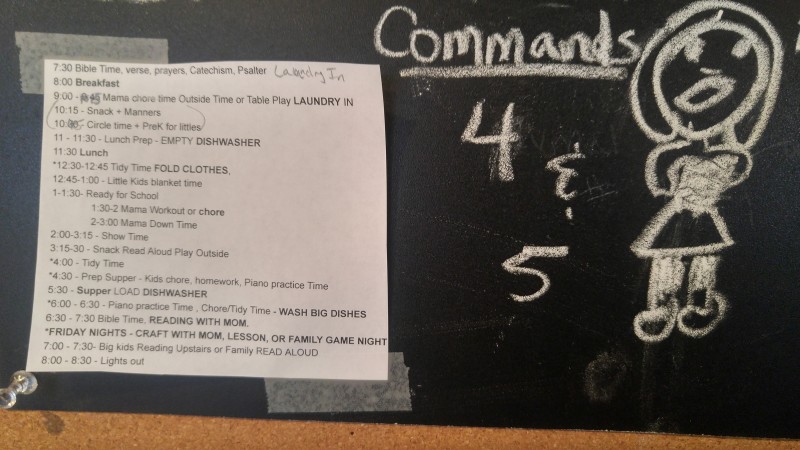 7:30 Bible Time, verse, prayers, Catechism, Psalter Laundry In
8:00 Breakfast
9:00 - Mama chore time Outside Time or Table Play LAUNDRY IN
10:15 - Snack + Manners
Circle time + PreK for littles
11 - 11:30 - Lunch Prep - EMPTY DISHWASHER
11:30 Lunch
*12:30-12:45 Tidy Time FOLD CLOTHES,
12:45-1:00 - Little Kids blanket time
1-1:30- Ready for School
1:30-2 Mama Workout or chore
2-3:00 Mama Down Time
2:00-3:15 - Show Time
3:15-30 - Snack Read Aloud Play Outside
*4:00 - Tidy Time
*4:30 - Prep Supper - Kids chore, homework, Piano practice Time
5:30 - Supper LOAD DISHWASHER
*6:00 - 6:30 - Piano practice Time , Chore/Tidy Time - WASH BIG DISHES
6:30 - 7:30 Bible Time, READING WITH MOM.
*FRIDAY NIGHTS - CRAFT WITH MOM, LESSON, OR FAMILY GAME NIGHT
7:00 - 7:30- Big kids Reading Upstairs or Family READ ALOUD
8:00 - 8:30 - Lights out
Commands
4
&
5